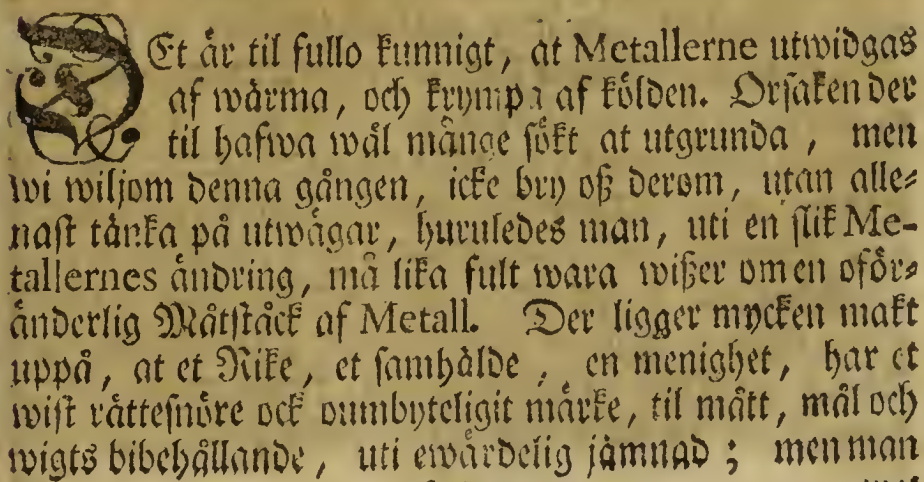 DEt är til fullo kunnigt, at Metallerne utwidgas
af wärma, och krympa af kölden. Orsaken der
til hafwa wäl månge sökt at utgrunda, men
wi wiljom denna gången, icke bry oß derom, utan alle=
nast tänka på utwägar, huruledes man, uti en slik Me-
tallernes ändring, må lika fult wara wißer om en oför=
änderlig Måtståck af Metall. Der ligger mycken makt
uppå, at et Rike, et samhälde, en menighet, har et
wist rättesnöre ock oumbyteligit märke, til mått, mål och
wigts bibehållande, uti ewärdelig jämnad; men man